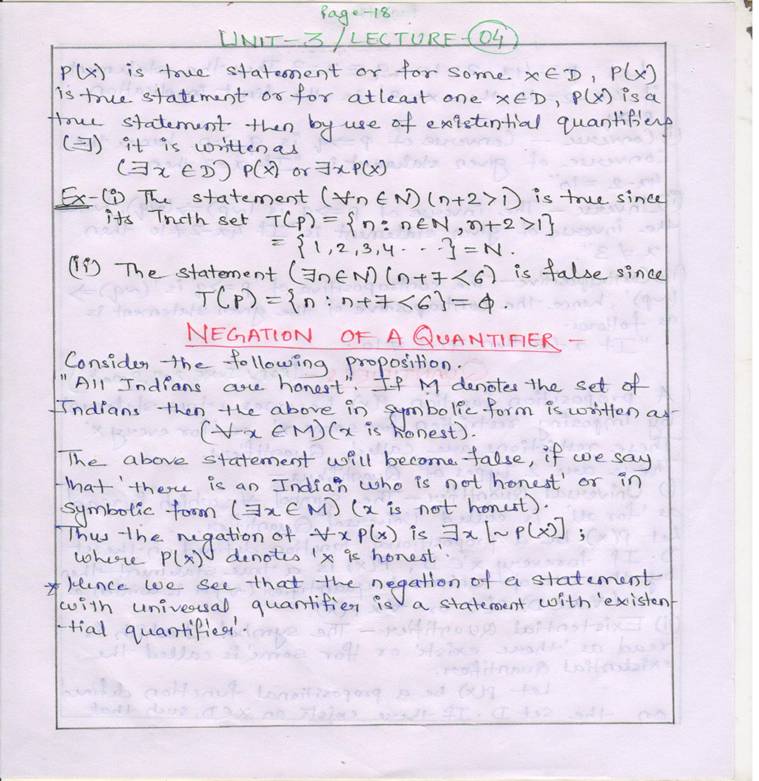 Page-18
UNIT-3/LECTURE-04
P(x) is true statement or for some x∈D, P(x)
is true statement or for atleast one x∈D, P(x) is a
true statement then by use of existential quantifiers
(∃) it is written as
(∃x ∈ D) P(x) or ∃x P(x)
Ex-(i) The statement (∀n∈N)(n+2>1) is true since
its Truth set T(p) = {n: n∈N, n+2>1}
= {1, 2, 3, 4 - - - } = N.
(ii) The statement (∃n∈N)(n+7<6) is false since
T(P) = {n : n+7<6} = ϕ
NEGATION OF A QUANTIFIER -
Consider the following proposition.
"All Indians are honest". If M denotes the set of
Indians then the above in symbolic form is written as
(∀x ∈ M)(x is honest).
The above statement will become false, if we say
that 'there is an Indian who is not honest' or in
symbolic form (∃x∈M) (x is not honest).
Thus the negation of ∀x P(x) is ∃x [~P(x)] ;
where P(x) denotes 'x is honest'.
* Hence we see that the negation of a statement
with universal quantifier is a statement with 'existen-
-tial quantifier'.